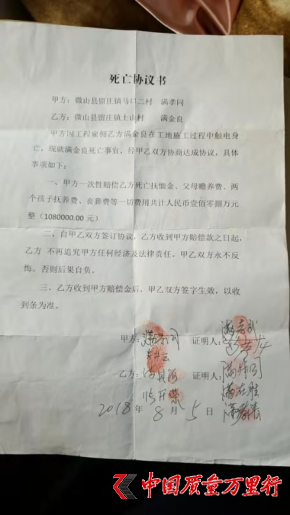 死亡协议书
甲方：微山县留庄镇马口二村 满孝同
乙方：微山县留庄镇土山村 满金良
甲方因工程雇佣乙方满金良在工地施工过程中触电身
亡，现就满金良死亡事宜，经甲乙双方协商达成协议，具体
事项如下：
一、甲方一次性赔偿乙方死亡抚恤金、父母赡养费、两
个孩子抚养费、丧葬费等一切费用共计人民币壹佰零捌万元
整（1080000.00元）
二、自甲乙双方签订协议，乙方收到甲方赔偿款之日起，
乙方 不再追究甲方任何经济及法律责任。甲乙双方永不反
悔。否则后果自负。
三、乙方收到甲方赔偿金后，甲乙双方签字生效，以收
到条为准。
甲方： 证明人：
乙方： 证明人：
2018年 8月 5日
中国质量万里行